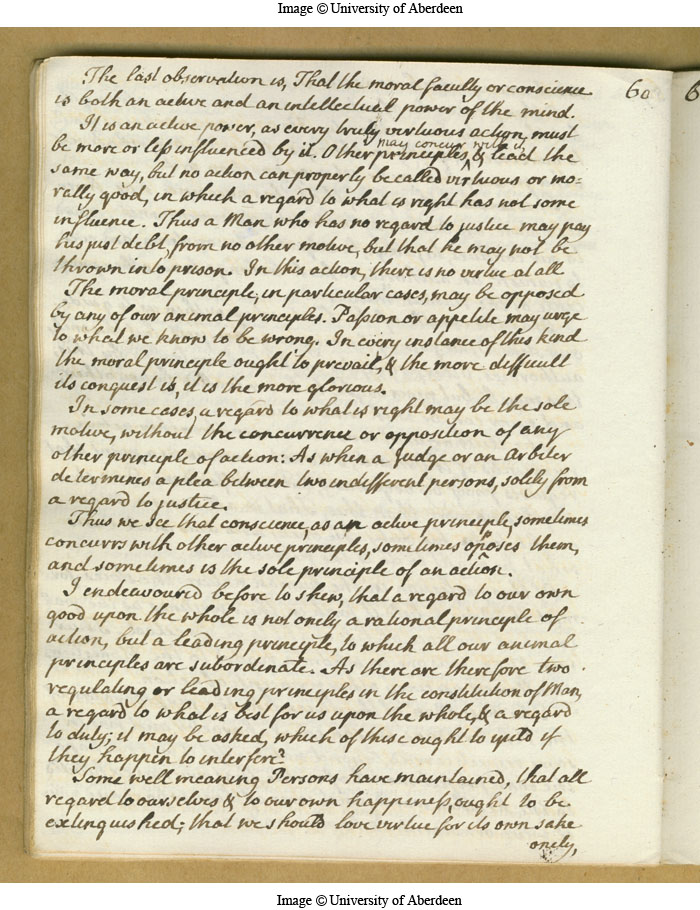 Image © University of Aberdeen
60
The last observation is, That the moral faculty or conscience
is both an active and an intellectual power of the mind.
It is an active power, as every truly virtuous action, must
be more or less influenced by it. Other principles, may concur with it & lead the
same way, but no action can properly be called virtuous or mo=
rally good, in which a regard to what is right has not some
influence. Thus a Man who has no regard to justice may pay
his just debt, from no other motive, but that he may not be
thrown into prison. In this action, there is no virtue at all
The moral principle, in particular cases, may be opposed
by any of our animal principles. Passion or appetite may urge
to what we know to be wrong. In every instance of this kind
the moral principle ought to prevail, & the more difficult
its conquest is, it is the more glorious.
In some cases, a regard to what is right may be the sole
motive, without the concurrence or opposition of any
other principle of action: As when a Judge or an Arbiter
determines a plea between two indifferent persons, solely from
a regard to justice.
Thus we see that conscience, as an active principle, sometimes
concurrs with other active principles, sometimes opposes them,
and sometimes is the sole principle of an action.
I endeavoured before to shew, that a regard to our own
good upon the whole is not onely a rational principle of
action, but a leading principle, to which all our animal
principles are subordinate. As there are therefore two
regulating or leading principles in the constitution of Man,
a regard to what is best for us upon the whole, & a regard
to duty; it may be asked, which of these ought to yield if
they happen to interfere?
Some well meaning Persons have maintained, that all
regard to ourselves & to our own happiness, ought to be
extinguished; that we should love virtue for its own sake
onely,
Image © University of Aberdeen